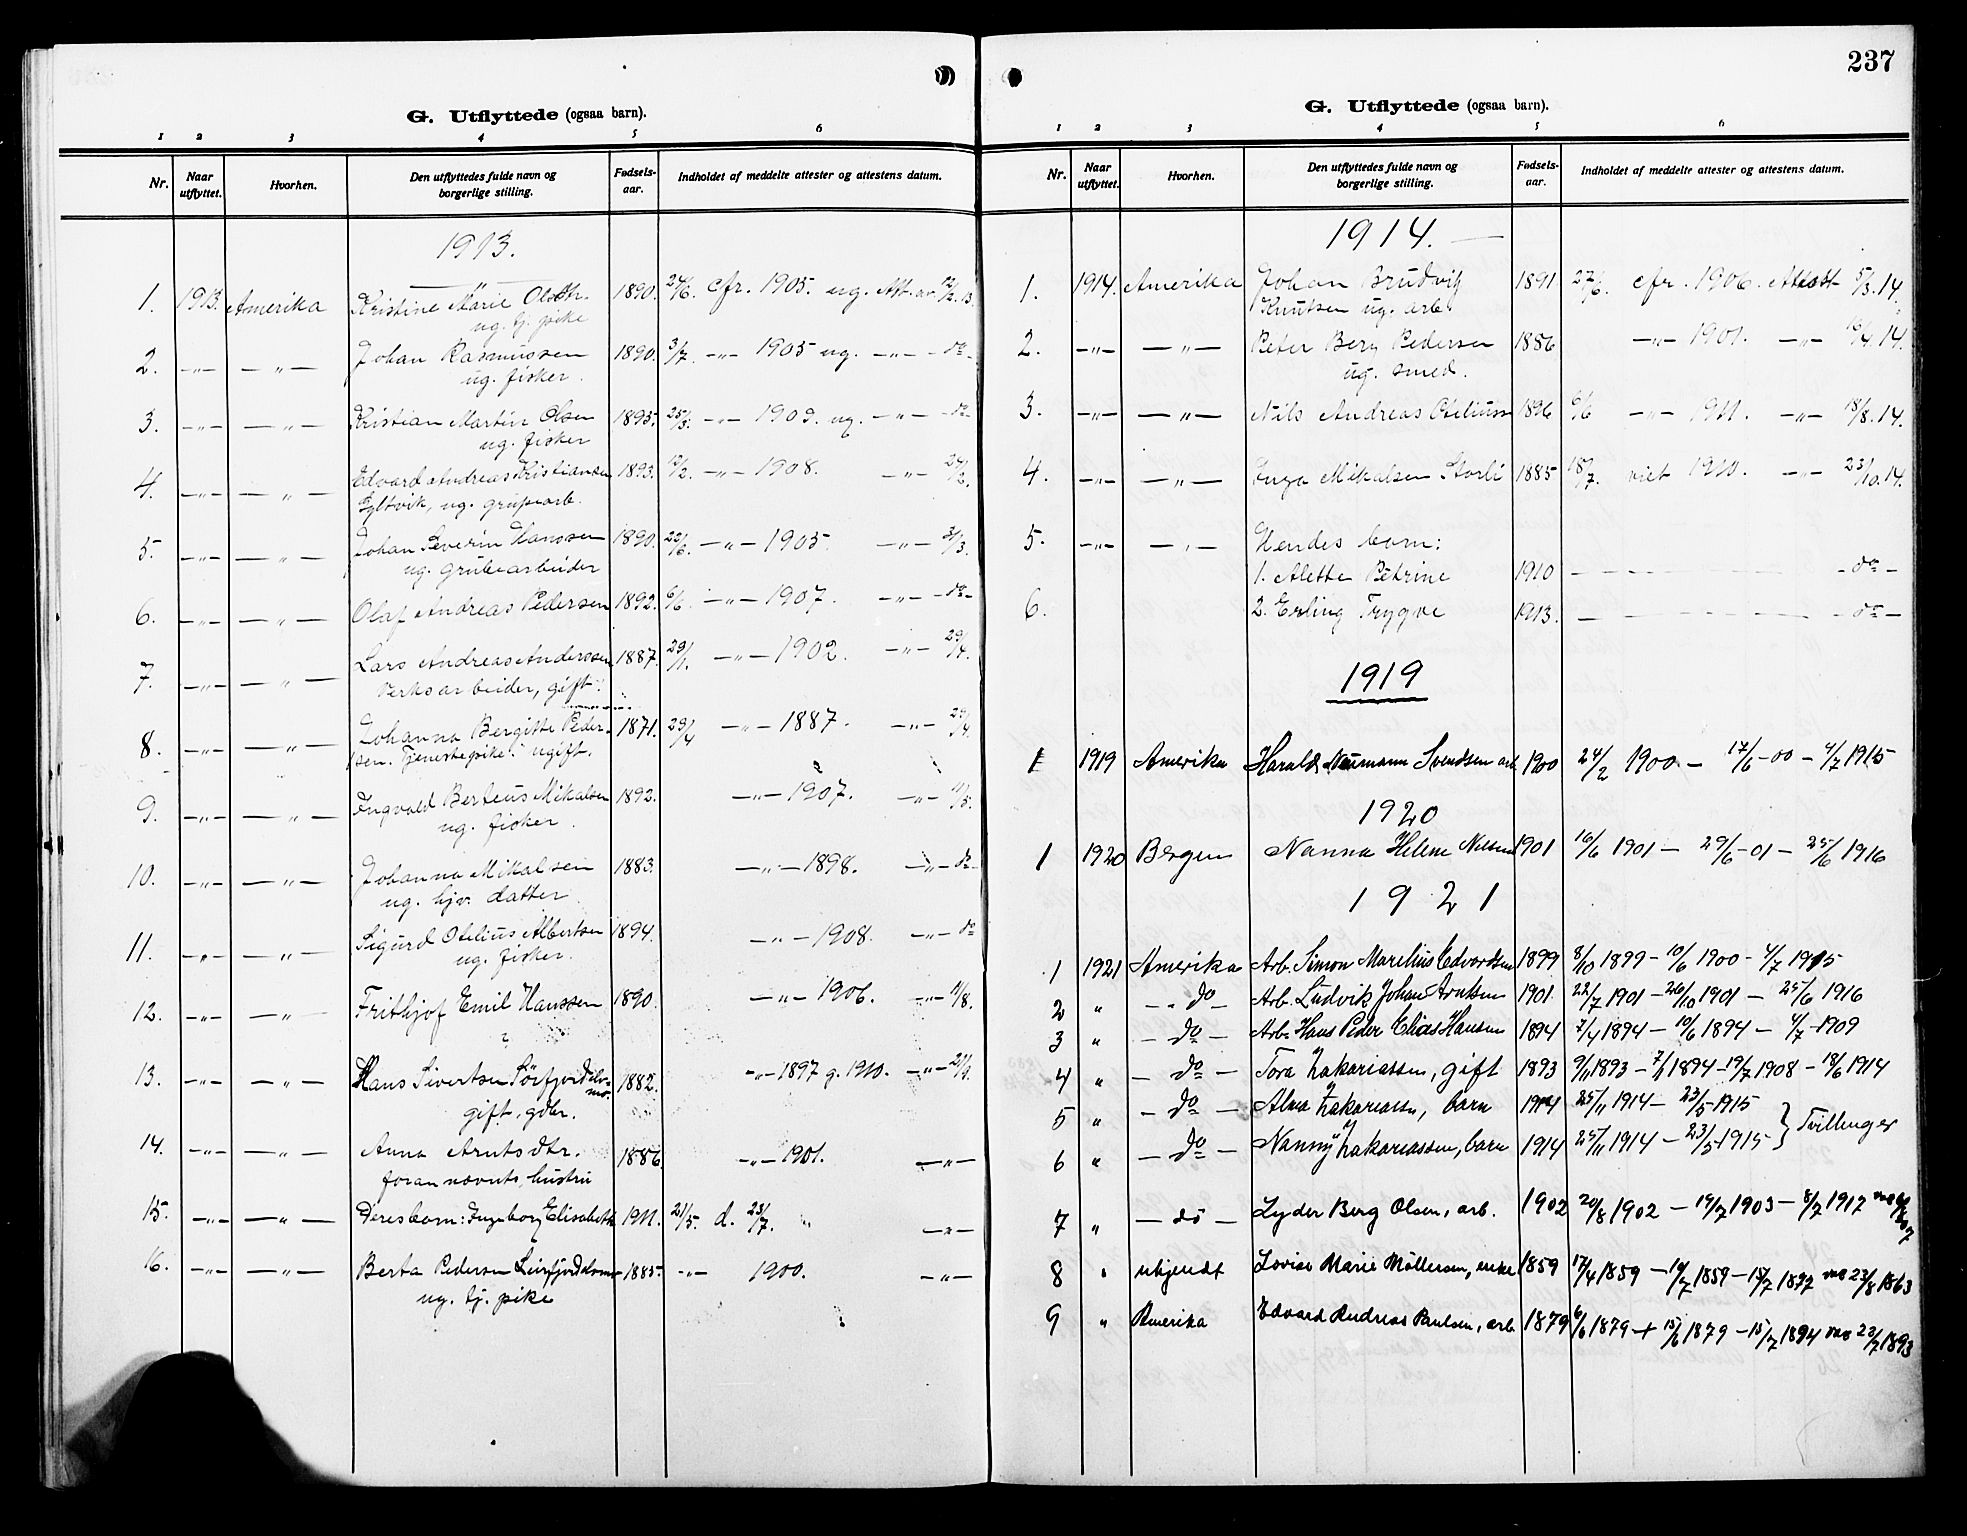 G. Utflyttede (ogsaa barn).
1 2 3 4 5 6
Nr. Naar utflyttet. Hvorhen. Den utflyttedes fulde navn og borgerlige stilling. Fødsels-aar. Indholdet af meddelte attester og attestens datum.
1913.
1. 1913. Amerika Kristine Marie Olsdtr. 1890. 24/6. cfr. 1905. ug. Att. av 12/2. 13.
ug. tj. pike
2. —"— — " — Johan Rasmussen 1890. 3/7. —"— 1905 ug. —"— - do -
ug. fisker.
3. —"— — " — Kristian Martin Olsen 1895. 25/3. —"— 1909. ug. —"— - do
ug. fisker
4. —"— — " — Edvard Andreas Kristiansen 1893. 12/2. —"— 1908. —"— 24/2.
ug. grubearb.
5. —"— — " — Johan Severin Hanssen 1890. 22/6. —"— 1905. —"— 3/3.
ug. grubearbeider
6. —"— — " — Olaf Andreas Pedersen 1892. 6/6. —"— 1907. —"— - do -
7. —"— — " — Lars Andreas Anderssen 1887. 29/1. —"— 1902. —"— 29/4.
Verksarbeider, gift.
8. —"— — " — Johanna Bergitte Peder- 1871. 29/4 —"— 1887. —"— 29/4.
sen. Tjenestepike. ugift.
9. —"— — " — Ingvald Berteus Mikalsen 1892. —"— 1907. —"— 11/5.
ug. fisker.
10. —"— — " — Johanna Mikalsen 1883. —"— 1898. —"— do
ug. hjv. datter
11. —"— — " — Sigurd Otelius Albertsen 1894. —"— 1908. —"— do
ug. fisker.
12. —"— — " — Frithjof Emil Hanssen 1890. —"— 1906. —"— 11/8.
13. —"— — " — Hans Sivertsen Sörfjord 1882. —"— 1897 g. 1910. —"— 21/9.
gift. gbr.
14. —"— — " — Anna Arntsdtr. 1886. —"— 1901. —"—
forannævnts hustru
15. —"— — " — Deres barn: Ingeborg Elisabeth 1911. 21/5. d. 23/7. " —"—
16. —"— — " — Berta Pedersen 1885. —"— 1900. —"—
ug. tj. pike
237
G. Utflyttede (ogsaa barn).
1 2 3 4 5 6
Nr. Naar utflyttet. Hvorhen. Den utflyttedes fulde navn og borgerlige stilling. Fødsels-aar. Indholdet af meddelte attester og attestens datum.
1914.
1. 1914. Amerika Johan Brudvik 1891. 27/6. cfr. 1906. Attest 5/3. 14.
Knutsen ug. arb.
2. —"— — " — Peter Berg Pedersen 1886 —"— 1901. —"— 16/4. 14.
ug. smed.
3. —"— — " — Nils Andreas Oteliussn 1896 6/6 —"— 1911. —"— 18/8. 14.
4. —"— — " — Inga Mikalsen Storli 1885 18/7. viet 1910. —"— 23/10. 14.
5. —"— — " — Hendes barn:
1. Alette Petrine 1910 — — — - do -
6. 2. Erling Trygve 1913. — — — - do -
1919
1 1919 Amerika Harald Neumann Svendsen arb. 1900 24/2 1900 — 17/6-00 — 4/7 1915
1920
1 1920 Bergen Nanna Helene Nilsen 1901 16/6 1901 — 29/6-01 — 25/6 1916
1921
1 1921 Amerika Arb. Simon Marelius Edvardsen 1899 8/10 1899 — 10/6 1900 — 4/7 1915
2 " — " do — Arb. Ludvik Johan Arntsen 1901 22/7 1901 — 26/10 1901 — 25/6 1916
3 " — do — Arb. Hans Peder Elias Hansen 1894 7/4 1894 — 10/6 1894 — 4/7 1909
4 " — do — Tora Zakariassen, gift 1893 9/11 1893 — 7/1 1894 — 19/7 1908 — 18/6 1914
5 " — do — Alma Zakariassn, barn 1914 25/11 1914 — 23/5 1915
} Tvillinger
6 " — do — Nanny Zakariassen, barn 1914 25/11 1914 — 23/5 1915
7 " — do — Lyder Berg Olsen, arb. 1902 20/8 1902 — 19/7 1903 — 8/7 1917
8 " ubjendt Lovise Marie Möllersen, enke 1859 17/4 1859 — 10/7 1859 — 18/7 1897 vac 23/8 1863
9 " Amerika Edvard Andreas Paulsen, arb. 1879 6/6 1879 + 15/6 1879 — 15/7 1894 vac 23/7 1893